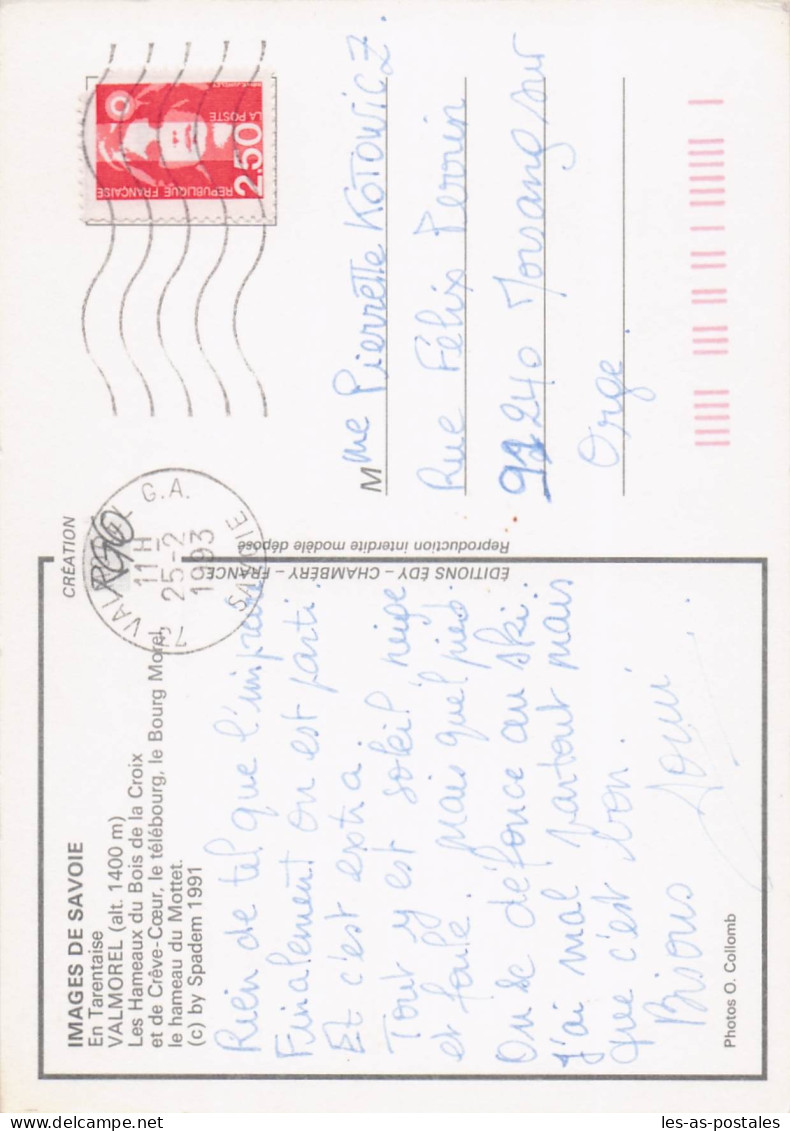 IMAGES DE SAVOIE
En Tarentaise
VALMOREL (alt. 1400 m)
Les Hameaux du Bois de la Croix
et de Crève-Cœur, le télébourg, le Bourg Morel,
le hameau du Mottet.
(c) by Spadem 1991
Rien de tel que l'imprévu
Finalement on est parti
Et c'est extra.
Tout y est soleil neige
et foule. Mais quel pied.
On se défonce au ski.
J'ai mal partout mais
que c'est bon.
Bisous
Photos O. Collomb
CRÉATION
ÉDITIONS ÉDY – CHAMBÉRY – FRANCE
Reproduction interdite modèle déposé
G.A.
11 H
25-2
1993
SAVOIE
RÉPUBLIQUE FRANÇAISE
LA POSTE
2,50
Mme Pierrette KOTOWICZ.
Rue Félix Perrin
91240 Morsang sur
Orge.
les-as-postales